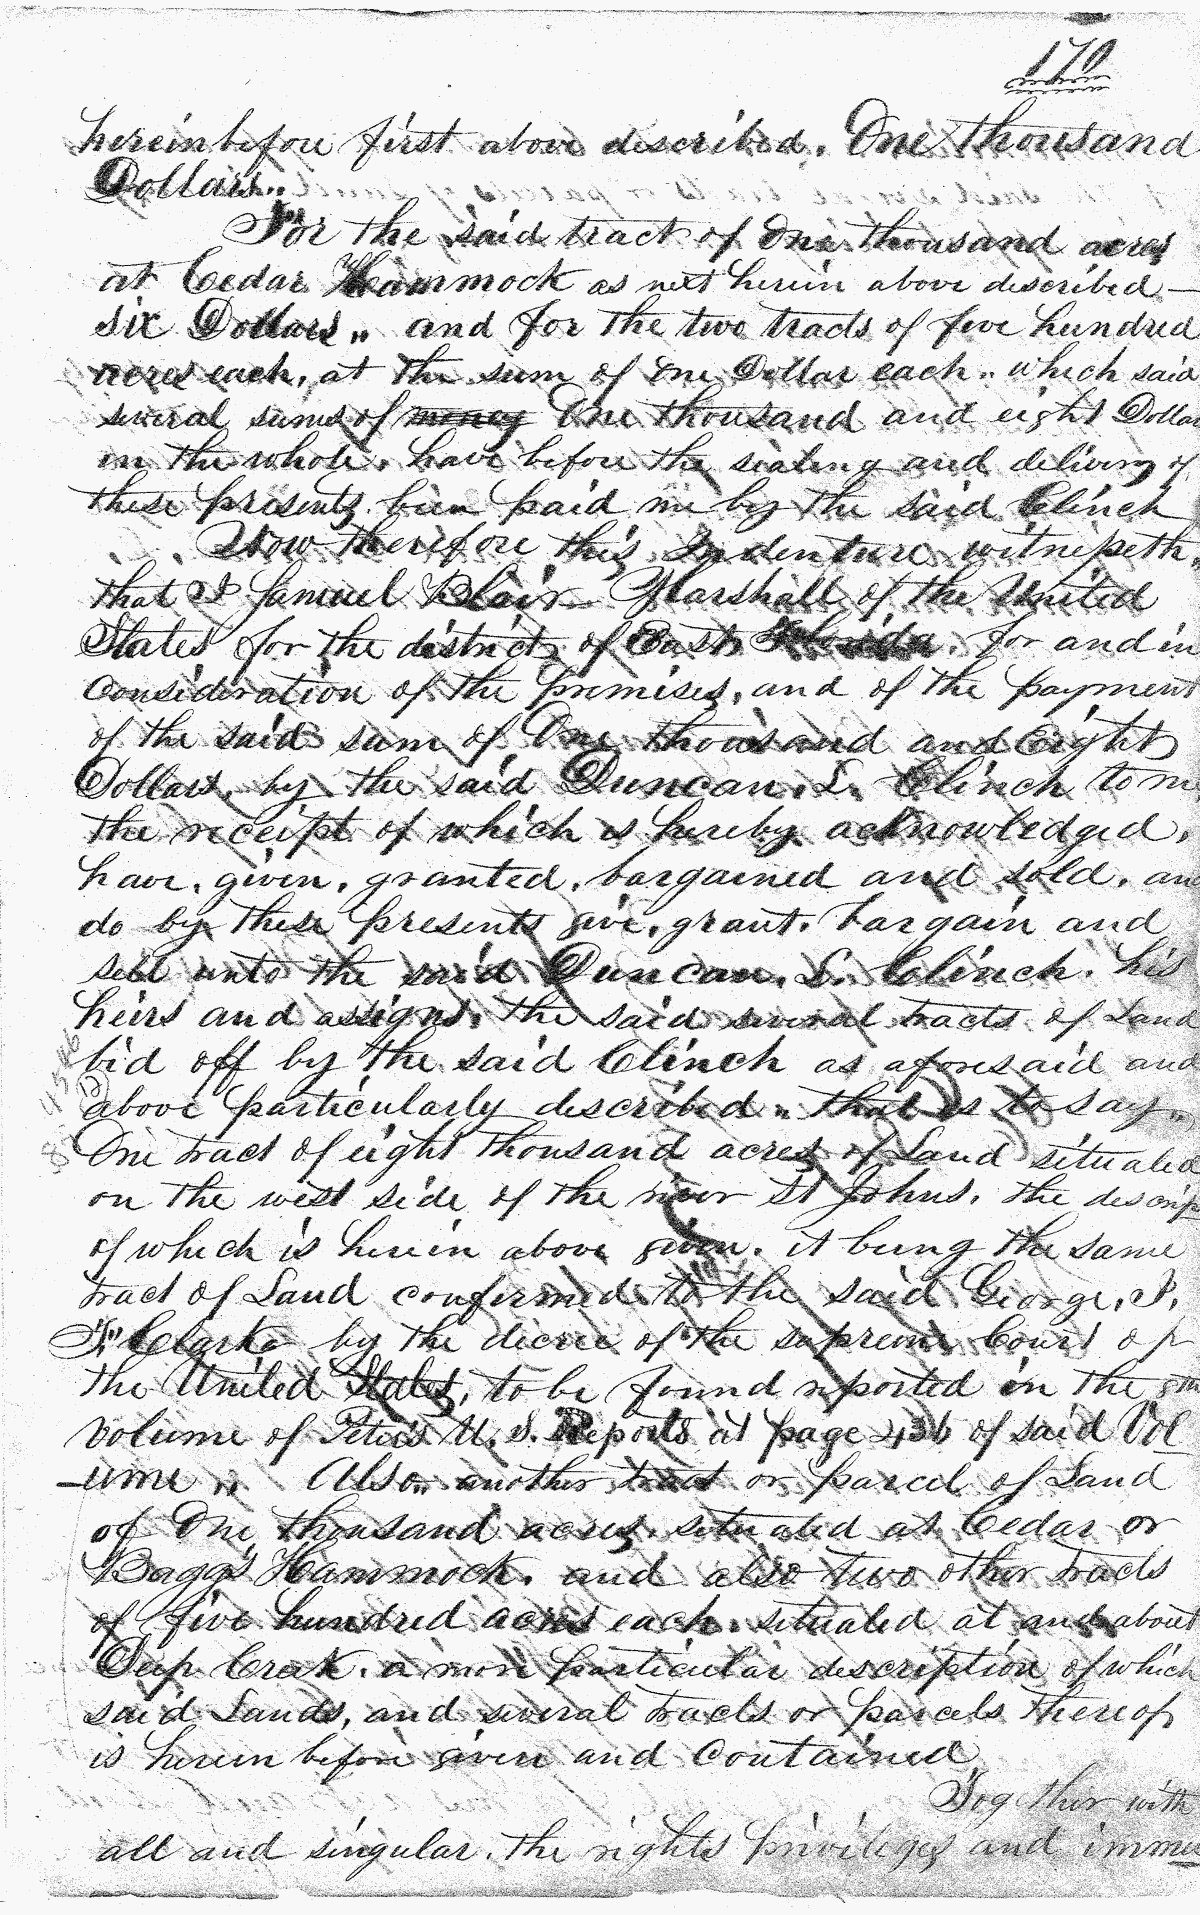 170
hereinbefore first above described. One thousand
Dollars.,
For the said tract of One thousand acres
at Cedar Hammock as next herein above described —
six Dollars,, and for the two tracts of five hundred
acres each, at the sum of one Dollar each.. which said
several sums of money One thousand and eight Dollar
in the whole. have before the sealing and delivery of
these presents been paid me by the said Clinch
Now therefore this Indenture witnesseth.,
that I Samuel Blair Marshall of the United
States for the district of East Florida. for and in
consideration of the premises, and of the payment
of the said sum of One thousand and Eight
Dollars, by the said Duncan, L. Clinch to me
the receipt of which is hereby acknowledged,
have, given, granted, bargained and sold, and
do by these presents give, grant, bargain and
sell unto the said Duncan, L. Clinch, his
heirs and assigns, the said several tracts of Land
bid off by the said Clinch as aforesaid and
above particularly described,, that is to say,,
One tract of eight thousand acres of Land situated
on the west side of the river St Johns, the descrip
of which is herein above given. it being the same
tract of Land confirmed to the said George, J.
F. Clarke by the decree of the supreme Court of
the United States, to be found reported in the 8th
volume of Peters U. S. Reports at page 436 of said Vol
-ume ,, Also,, another tract or parcel of Land
of One thousand acres, situated at Cedar or
Baggs Hammock. and also two other tracts
of five hundred acres each, situated at and about
Deep Creek, a more particular description of which
said Lands, and several tracts or parcels thereof
is herein before given and contained
Together with
all and singular, the rights privileges and immu